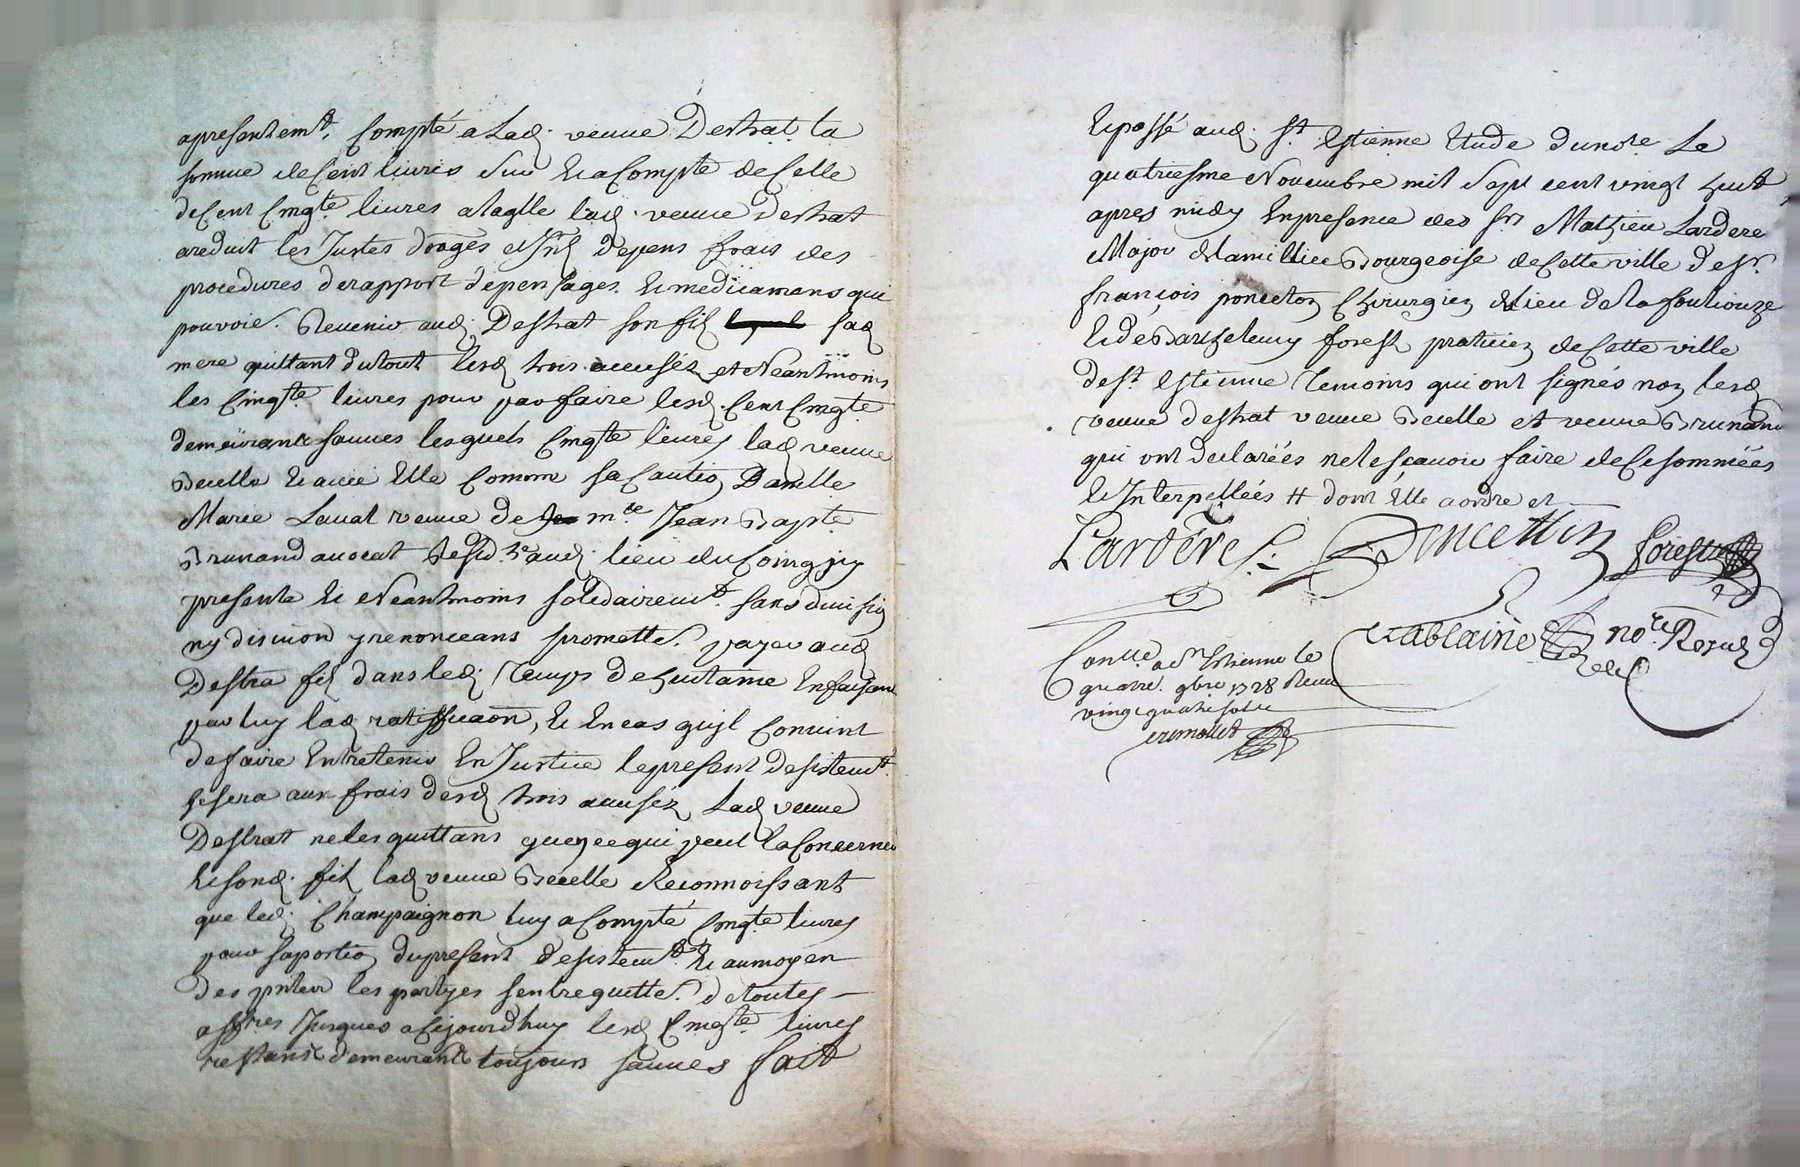 apresentemt. Compté a Lad. veuve Destrat la
somme de Cent livres Sur & a Compte de Celle
de Cent Cinqte livres a laqlle lad. veuve Destrat
a reduit les Justes domages depens frais des
procedures de rapport depensages & medicamens qui
pouvoit Revenir aud. Destrat son fils sad
mere quittant du tout lesd trois accusez et Neantmoins
les Cinqte livres pour parfaire lesd. Cent Cinqte
demeurants sauves lesquels Cinqte livres lad veuve
Becelle & avec Elle Comme sa Caution Danelle
Marie Laval veuve de me Jean Bapte
Brunand avocat aud. lieu du Coing jcy
presente & Neantmoins solidairemt. sans division
ny discution y renonceans promette. payer aud
Destra fils dans led. Temps de huitaine En faisant
par luy lad rattiffication, & En cas qujl Convint
de faire Entretenir En Justice le present desistemt.
se sera aux frais desd trois accusez Lad veuve
Destrat ne les quittans que ce qui peut la Concerner
& sond. fils lad veuve Becelle Reconnoissant
que led. Champaignon luy a Compté Cinqte livres
pour sa portion du present desistemt. & au moyen
des pntes les partyes sentrequitte. de toutes
affres Jusques a Cejourdhuy lesd Cinqte livres
restants demeurants toujours sauves fait
& passé aud. St. Estienne Etude du nore Le
quatriesme Novembre mil Sept cent vingt huit
apres midy En presence des Srs Mathieu Lardere
Major de la millice Bourgeoise de Cette ville de Sr.
françois ponceton Chirurgien du lieu de la fouliouze
& de Barthelemy forest praticien de Cette ville
de St. Estienne Temoins qui ont signés non lesd
veuve destrat veuve Becelle et veuve Brunand
qui ont declarées ne le sçavoir faire de Ce sommées
& Interpellées # dont Elle a ordre et
Larderes. Poncetton forest
Tablaine nore Royal
Conlle. a St Estienne le
quatre. 9bre 1728 Receu
vingt quatre sols